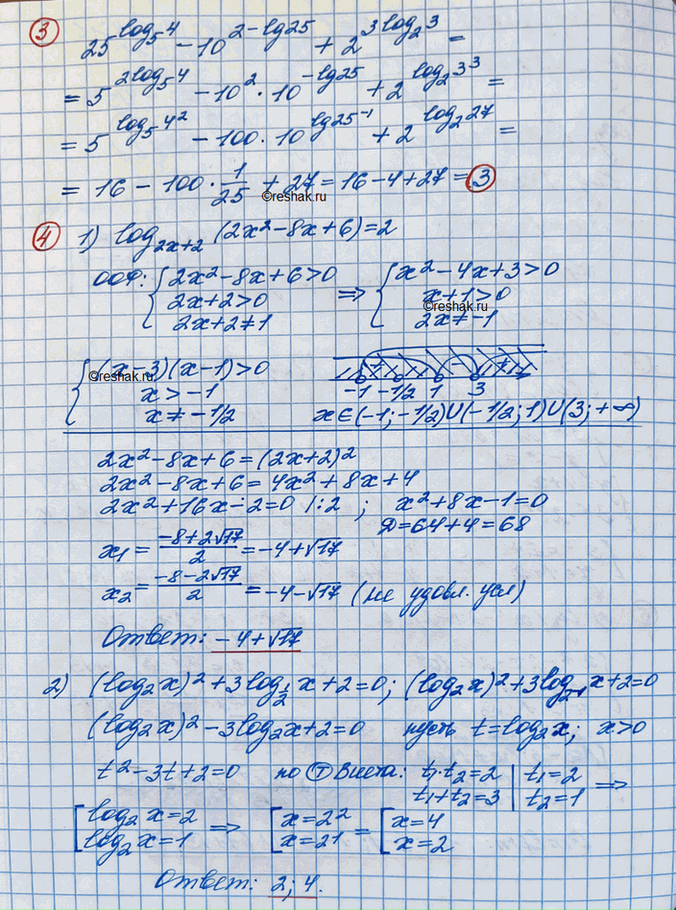 ③ 25^(log₅4) − 10^(2−lg25) + 2^(3log₂3) =
= 5^(2log₅4) − 10² · 10^(−lg25) + 2^(log₂3³) =
= 5^(log₅4²) − 100 · 10^(lg25⁻¹) + 2^(log₂27) =
= 16 − 100 · 1/25 + 27 = 16 − 4 + 27 = 3
©reshak.ru
④ 1) log_(2x+2) (2x²−8x+6) = 2
ООФ: { 2x²−8x+6>0 ⇒ { x²−4x+3>0
2x+2>0 x+1>0
©reshak.ru
2x+2≠1 2x≠−1
{ (x−3)(x−1)>0
©reshak.ru
x>−1 −1 −1/2 1 3
x≠−1/2 x∈(−1;−1/2)∪(−1/2;1)∪(3;+∞)
2x²−8x+6=(2x+2)²
2x²−8x+6=4x²+8x+4
2x²+16x−2=0 |:2 ; x²+8x−1=0
D=64+4=68
x₁ = (−8+2√17)/2 = −4+√17
x₂ = (−8−2√17)/2 = −4−√17 (не удовл. усл)
Ответ: −4+√17
2) (log₂x)²+3log_(1/2)x+2=0; (log₂x)²+3log_(2⁻¹)x+2=0
(log₂x)²−3log₂x+2=0 пусть t=log₂x; x>0
t²−3t+2=0 по Ⓣ Виета: t₁·t₂=2 | t₁=2 ⇒
t₁+t₂=3 | t₂=1
[ log₂x=2 ⇒ [ x=2² = [ x=4
log₂x=1 x=2¹ x=2
Ответ: 2; 4.